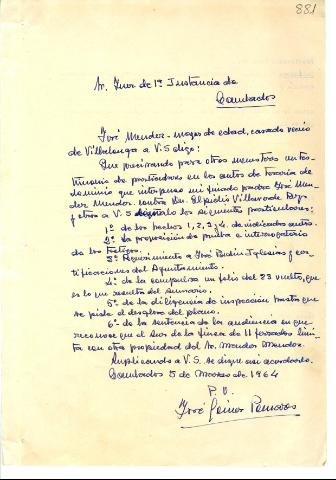 881
Sr. Juez de 1ª Instancia de
Cambados
José Mendez mayor de edad, casado vecino
de Villalonga a V. S. digo:
Que precisando para otros menesteres un tes-
timonio de particulares en los autos de terceria de
dominio que interpuso mi finado padre José Men-
dez Mendez contra Elpidio Villaverde Rey
y otra a V. S. los siguientes particulares:
1º de los hechos 1, 2, 3, y 4 de indicados autos
2º La proposición de prueba e interrogatorio
de los testigos.
3º Requerimiento a José Padin Iglesias y cer-
tificaciones del Ayuntamiento.
4º de la compulsa un folio del 23 vuelto, que
es lo que resulta del sumario.
5º de la diligencia de inspección hasta que
se pide el desglose del plano.
6º de la sentencia de la audiencia en que
reconoce que el Sur de la finca de 11 ferrados limi-
ta con otra propiedad del Sr. Mendez Mendez.
Suplicando a V. S. se digne asi acordarlo.
Cambados 5 de Marzo de 1964
P. O.
José